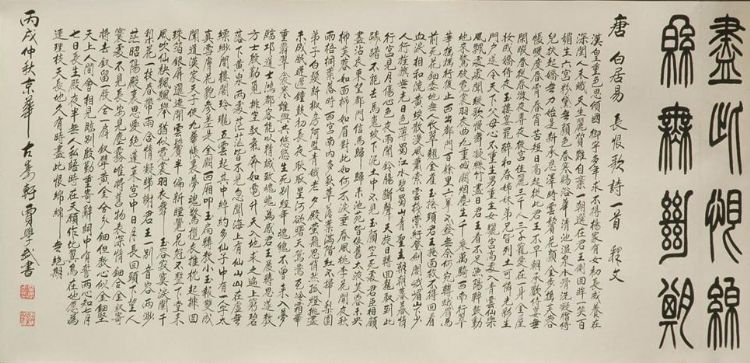 盡此恨綿
緜無絕期
唐 白居易 長恨歌詩一首 釋文
漢皇重色思傾國御宇多年求不得楊家有女初長成養在
深閨人未識天生麗質難自棄一朝選在君王側回眸一笑百
媚生六宮粉黛無顏色春寒賜浴華清池溫泉水滑洗凝脂侍
兒扶起嬌無力始是新承恩澤時雲鬢花顏金步搖芙蓉
帳暖度春宵春宵苦短日高起從此君王不早朝承歡侍宴無
閒暇春從春遊夜專夜後宮佳麗三千人三千寵愛在一身金屋
妝成嬌侍夜玉樓宴罷醉和春姊妹弟兄皆列土可憐光彩生
門戶遂令天下父母心不重生男重生女驪宮高處入青雲仙樂
風飄處處聞緩歌慢舞凝絲竹盡日君王看不足漁陽鼙鼓動
地來驚破霓裳羽衣曲九重城闕煙塵生千乘萬騎西南行翠
華搖搖行復止西出都門百餘里六軍不發無奈何宛轉蛾眉馬
前死花鈿委地無人收翠翹金雀玉搔頭君王掩面救不得回看
血淚相和流黃埃散漫風蕭索雲棧縈紆登劍閣峨嵋山下少
人行旌旗無光日色薄蜀江水碧蜀山青聖主朝朝暮暮情
行宮見月傷心色夜雨聞鈴腸斷聲天旋日轉回龍馭到此
躊躇不能去馬嵬坡下泥土中不見玉顏空死處君臣相顧
盡沾衣東望都門信馬歸歸來池苑皆依舊太液芙蓉未央
柳芙蓉如面柳如眉對此如何不淚垂春風桃李花開夜秋
雨梧桐葉落時西宮南內多秋草落葉滿階紅不掃梨園
弟子白髮新椒房阿監青娥老夕殿螢飛思悄然孤燈挑盡
未成眠遲遲鐘鼓初長夜耿耿星河欲曙天鴛鴦瓦冷霜華
重翡翠衾寒誰與共悠悠生死別經年魂魄不曾來入夢
臨邛道士鴻都客能以精誠致魂魄為感君王展轉思遂教
方士殷勤覓排空馭氣奔如電升天入地求之遍上窮碧
落下黃泉兩處茫茫皆不見忽聞海上有仙山山在虛無
縹緲間樓閣玲瓏五雲起其中綽約多仙子中有一人字太
真雪膚花貌參差是金闕西廂叩玉扃轉教小玉報雙成
聞道漢家天子使九華帳裏夢魂驚攬衣推枕起徘徊
珠箔銀屏迤邐開雲鬢半偏新睡覺花冠不整下堂來
風吹仙袂飄颻舉猶似霓裳羽衣舞玉容寂寞淚闌干
梨花一枝春帶雨含情凝睇謝君王一別音容兩渺
茫昭陽殿裏恩愛絕蓬萊宮中日月長回頭下望人
寰處不見長安見塵霧唯將舊物表深情鈿合金釵寄
將去釵留一股合一扇釵擘黃金合分鈿但教心似金鈿堅
天上人間會相見臨別殷勤重寄詞詞中有誓兩心知七月
七日長生殿夜半無人私語時在天願作比翼鳥在地願為
連理枝天長地久有時盡此恨綿綿無絕期
丙戌仲秋京華古雋軒賈學武書